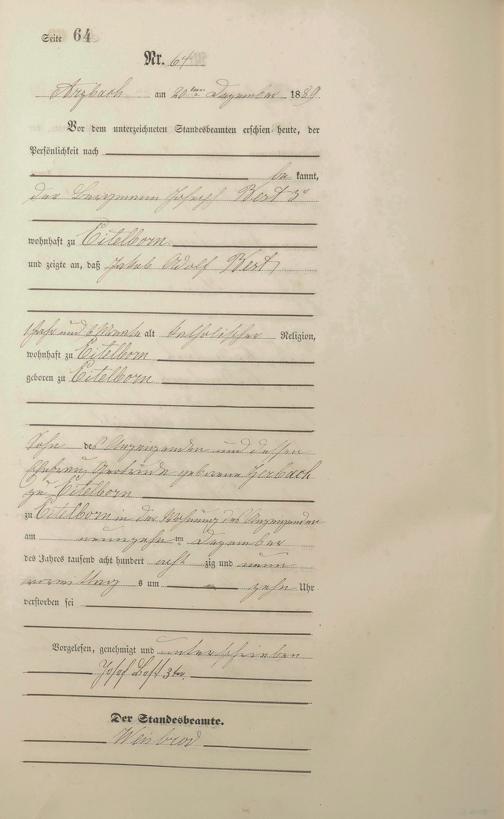 Seite 64
Nr. 64
Arzbach am 20ten Dezember 1889
Vor dem unterzeichneten Standesbeamten erschien heute, der
Persönlichkeit nach
be kannt,
der Bergmann Joseph Bert 3r
wohnhaft zu Eitelborn
und zeigte an, daß Jakob Adolf Bert
Jahr und 6 Monate alt katholischer Religion,
wohnhaft zu Eitelborn
geboren zu Eitelborn
Sohn des Anzeigenden und dessen
Ehefrau Gertrude geborene Zerbach
zu Eitelborn
zu Eitelborn in der Wohnung des Anzeigenden
am neunzehn ten Dezember
des Jahres tausend acht hundert acht zig und neun
vormittag s um zehn Uhr
verstorben sei
Vorgelesen, genehmigt und unterschrieben
Josef 3ter
Der Standesbeamte.
Weisbrod